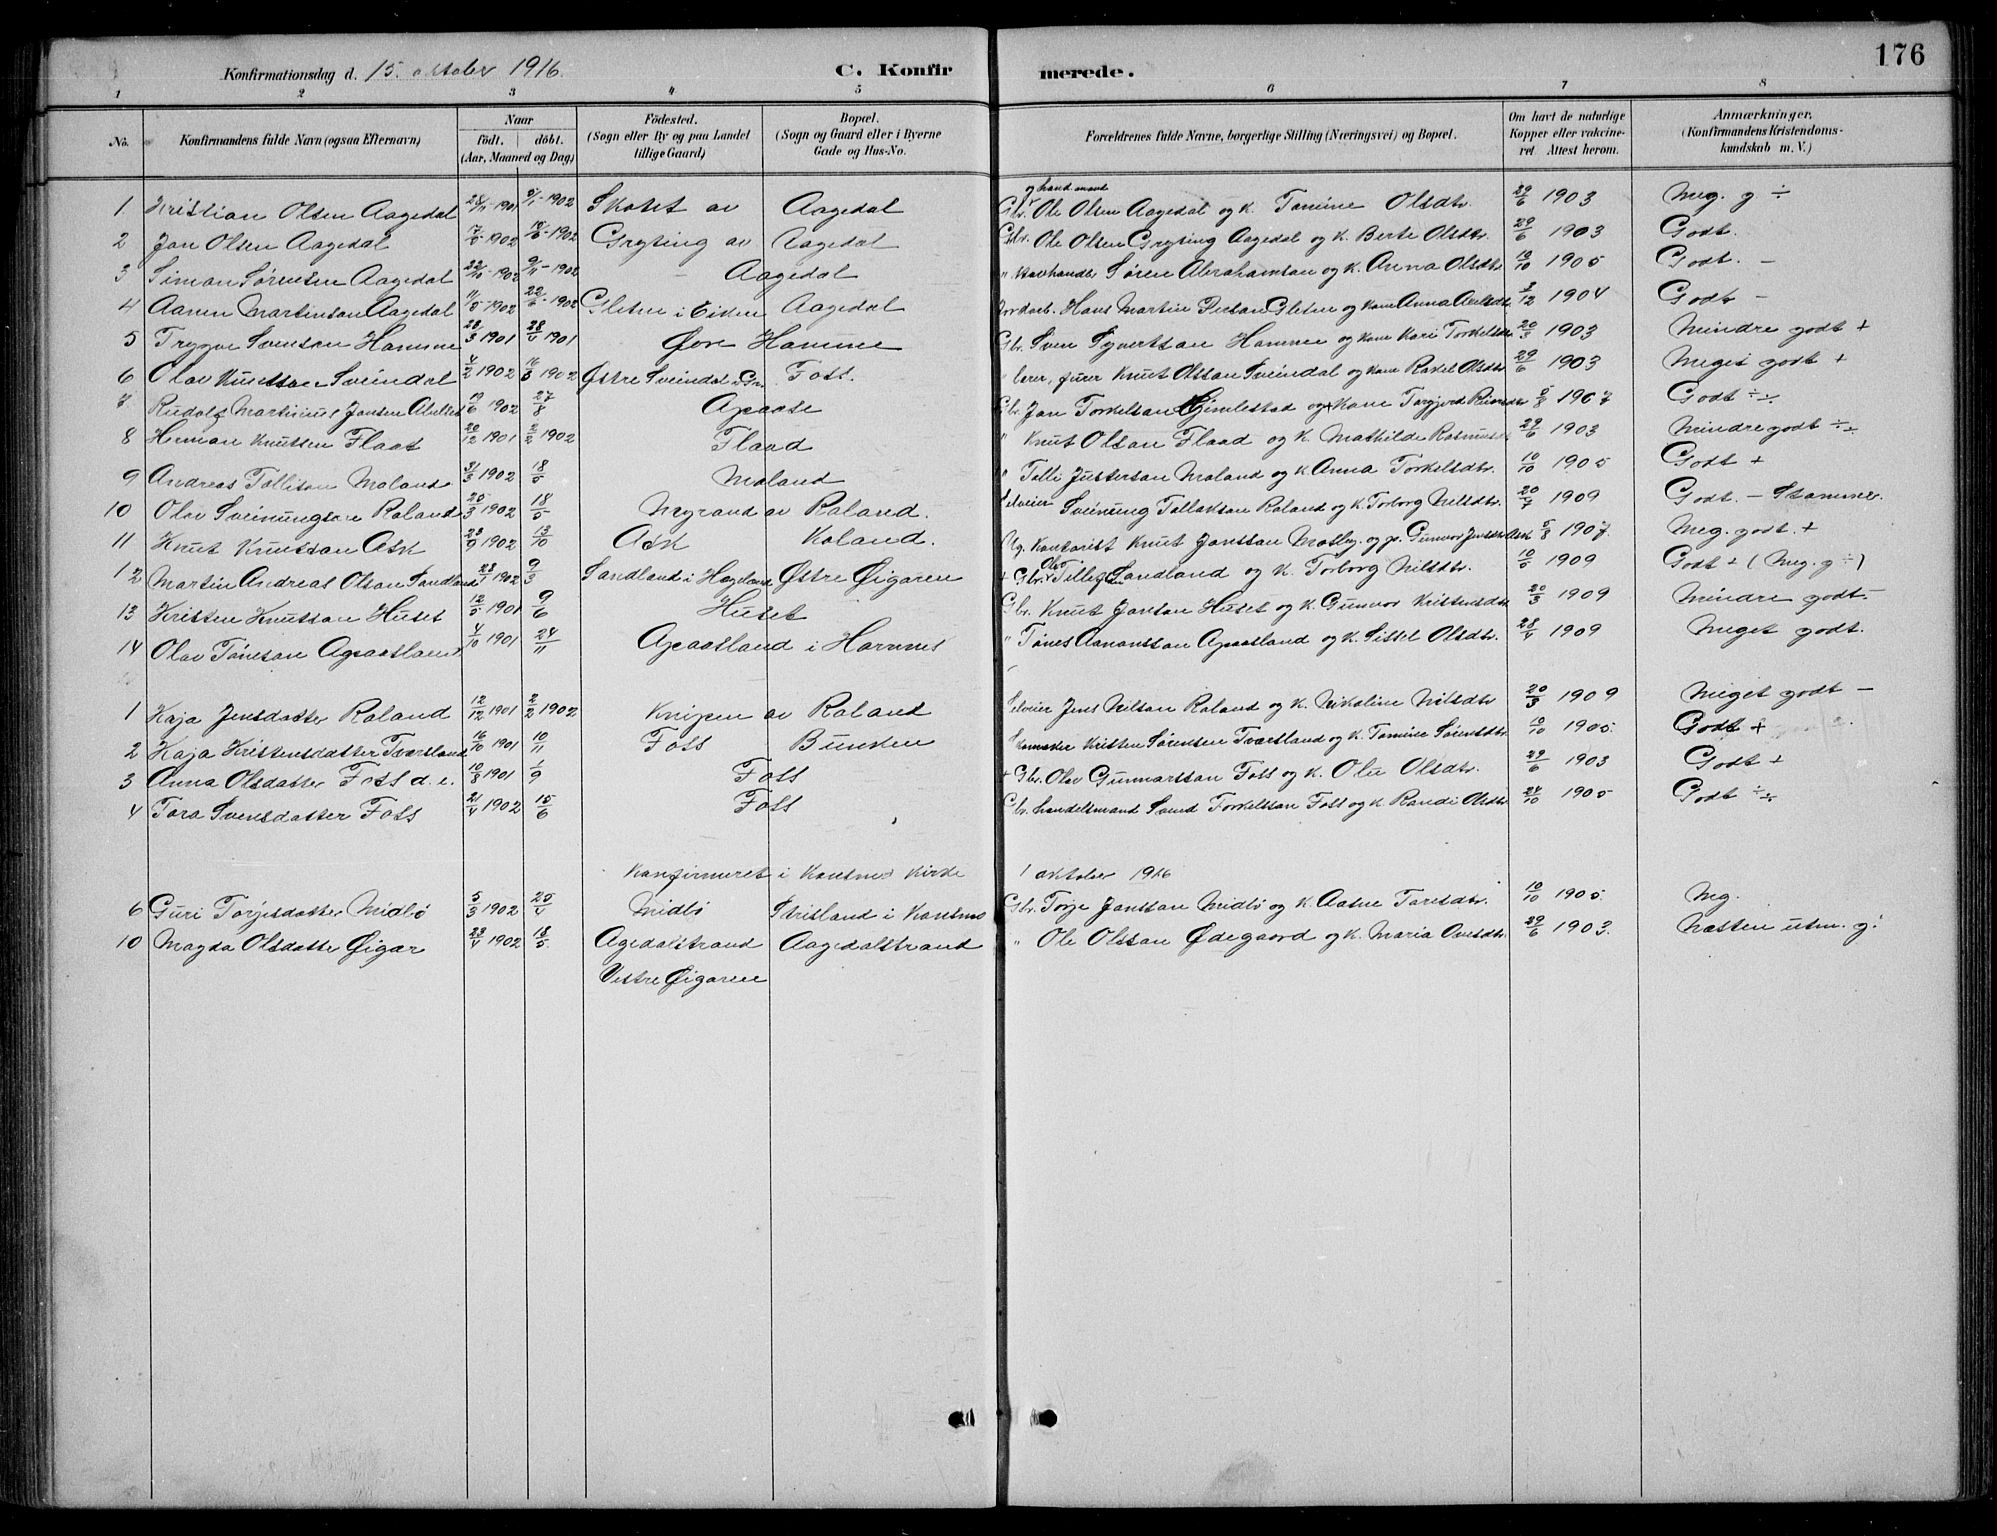 176
Konfirmationsdag d. 15. oktober 1916. C. Konfirmerede.
1 2 3 4 5 6 7 8
No. Konfirmandens fulde Navn (ogsaa Efternavn) Naar födt. döbt. (Aar, Maaned og Dag) Födested. (Sogn eller By og paa Landet tillige Gaard) Bopæl. (Sogn og Gaard eller i Byerne Gade og Hus-No. Forældrenes fulde Navne, borgerlige Stilling (Næringsvei) og Bopæl. Om havt de naturlige Kopper eller vakcineret Attest herom. Anmærkninger. (Konfirmandens Kristendomskundskab m. V.)
1 Kristian Olsen Aagedal 28/11-1901 5/1-1902 Skotet av Aagedal Gbr. og handmand Ole Olsen Aagedal og K. Tomine Olsdtr. 29/6 1903 Meg. g ÷
2 Jan Olsen Aagedal 17/5-1902 15/6-1902 Gryting av Aagedal Gbr. Ole Olsen Gryting Aagedal og K. Berte Olsdtr. 29/6 1903 Godt.
3 Simon Sørensen Aagedal 22/10-1902 9/11-1902 – Aagedal " Søren Abrahamsen og K. Anna Olsdtr 10/10 1905 Godt. –
4 Aanen Martinsan Aagedal 11/5-1902 22/6-1902 Gletne i Eiken Aagedal Jordarb. Hans Martin Persan Gletne og kone Anna 3/12 1904 Godt –
5 Trygve Svensan Hamme 28/3 1901 28/4 1901 Øvre Hamme Gbr. Sven Syvertsan Hamme og kone Kari Torkelsdtr. 20/3 1903 Mindre godt +
6 Olav Knutssan Sveindal 4/2 1902 16/3 1902 Østre Sveindal i Foss. " lærer, Knut Olssan Sveindal og kone Rakel Olsdtr 29/6 1903 Meget godt +
7 Rudolf Martinius Jansen 19/6 1902 27/8 Apaate Gbr. Jan Torkelsan Gjemlestad og kone Torgjerd 5/8 1907 Godt ÷
8 Herman Knutsen Flaat 20/12 1901 2/2 1902 Flaad " Knut Olsan Flaad og K. Mathilde Rasmusdtr 29/6 1903 Mindre godt ÷
9 Andreas Tollisan Moland 31/3 1902 18/5 Moland " Tolli Justersan Moland og K. Anna Torkelsdtr. 10/10 1905 Godt +
10 Olav Sveinungsan Roland 25/3 1902 18/5 Myrand av Roland. Selveier Sveinung Tellaksan Roland og K. Torborg Nilsdtr. 20/7 1909 Godt. – Stammer.
11 Knut Knutssan Ask 28/9 1902 13/10 Ask Roland. Ug. Kontorist Knut Janssan Mosby. og p. Gunvor Jensdtr Ask 5/8 1907 Meg. godt. +
12 Martin Andreas Olsan Sandland 28/1 1902 9/3 Sandland i Hægeland Østre Øigaren + Gbr. Olav Tellefsen Sandland og K. Torborg Nilsdtr. 10/5 1909 Godt + (Meg. g ÷)
13 Kristen Knutsan Huset 12/5 1901 9/6 Huset Gbr. Knut Jansan Huset og K. Gunvor Kristensdtr 20/3 1909 Mindre godt –
14 Olav Tønesan Apaatsland 4/10 1901 24/11 Apaatsland i Hornnes " Tønes Aanonssan Apaatsland og K. Sissel Olsdtr. 28/4 1909 Meget godt.
1 Kaja Jensdatter Roland 12/12 1901 2/2 1902 Knipen av Roland Selveier Jens Nilsan Roland og K. Nikoline Nilsdtr 20/3 1909 Meget godt –
2 Kaja Kristensdatter Tvartsland 16/10 1901 10/11 Foss Bunken Skomaker Kristen Sørensen Tvartsland og K. Tomine Sørensdtr 10/10 1905. Godt +
3 Anna Olsdatter Foss d. e. 10/8 1901 1/9 Foss + Gbr. Olav Gunnarssan Foss og K. Olu Olsdtr. 29/6 1903 Godt +
4 Tora Svensdatter Foss 21/4 1902 15/6 Foss Gbr. handelsmand Svend Torkelsan Foss og K. Randi Olsdtr 24/10 1905 Godt ÷
Konfirmeret i Konsmo Kirke 1 oktober 1916
6 Guri Torjesdatter Midbø 5/3 1902 20/4 Midbø Stusland i Konsmo Gbr. Torje Janssan Midbø og K. Aasne Toresdtr. 10/10 1905. Mg.
10 Magda Olsdatter Øigar 23/4 1902 18/5 Agedalstrand Aagedalstrand " Ole Olssan Ødegaard og K. Maria Ovesdtr. 29/6 1903. Næsten utm. g!
Vestre Øigaren